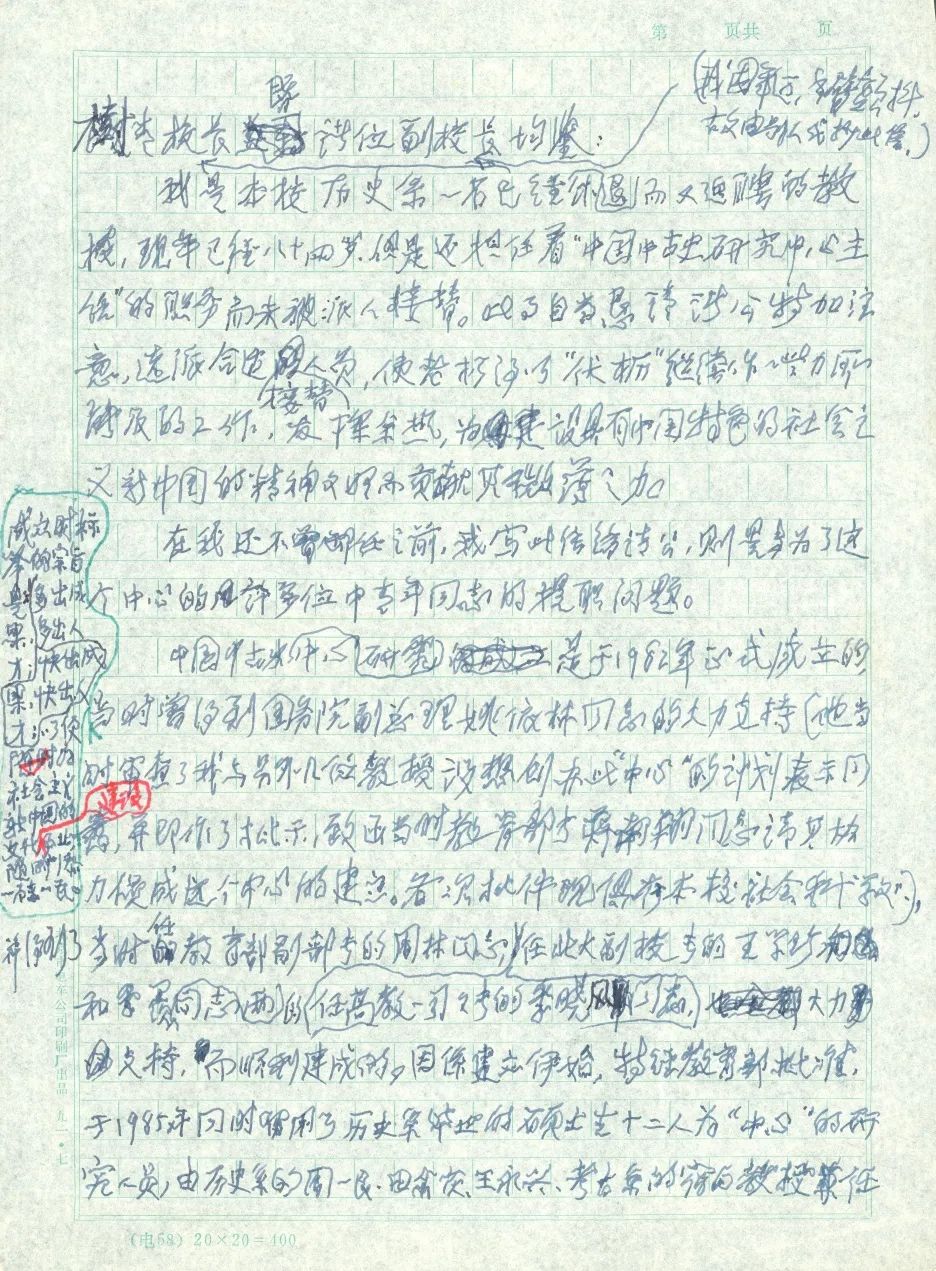 第 页共 页
（我因手颤，
故由别人代抄此信。）
校长暨诸位副校长均鉴：
我是本校历史系一名已经退而又返聘的教
授，现年已经八十四岁，但是还担任着“中国中古史研究中心主
任”的职务而未被派人接替。因此乃自首恳请诸公特加注
意，遴派合适的人员，使老朽得以“伏枥”继续作一些力所
接替
能及的工作，发挥余热，为建设具有中国特色的社会主
义新中国的精神文明而贡献其微薄之力。
在我还不曾卸任之前，我写此信给诸公，则是为了这
个中心的许多位中青年同志的提职问题。
中国中古史研究中心是于1982年正式成立的
当时曾得到国务院副总理姚依林同志的大力支持（他当
时审查了我与另外几位教授设想创办此“中心”的计划表示同
意，并即作了批示，致函当时教育部长蒋南翔同志请其协
力促成这个中心的建立。各次批件现俱存本校社会科学处），
并得到了当时任教育部副部长的周林同志，任北大副校长的王学珍
和季羡同志的任高教一司司长的季啸风同志，大力
支持，而顺利建成的。因系建立伊始，特经教育部批准，
于1985年同时留用了历史系毕业的硕士生十二人为“中心”的研
究人员，由历史系的周一良、田余庆、王永兴、考古系的宿白教授兼任
成立时标
举的宗旨
是：多出成
果，多出人
才；快出成
果，快出人
才；以便
随时为
社会主义
新中国的
建设
（电58）20×20=400